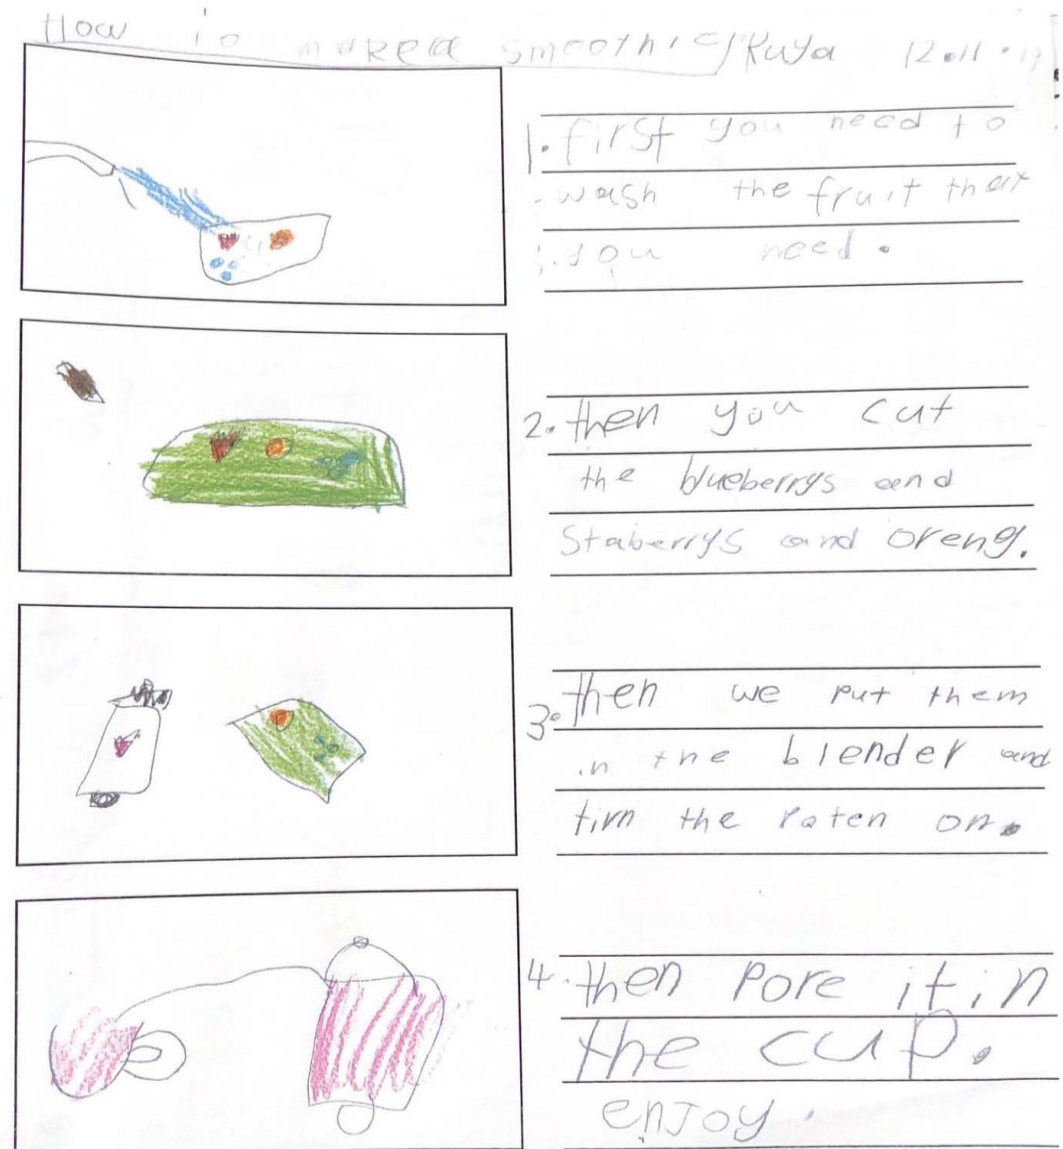 How to make a smoothie Kuya 12.11.19
1. first you need to
wash the fruit that
you need.
2. then you cut
the blueberrys and
Staberrys and oreng.
3. then we put them
in the blender and
tirn the paten on.
4. then pore it in
the cup.
enjoy.